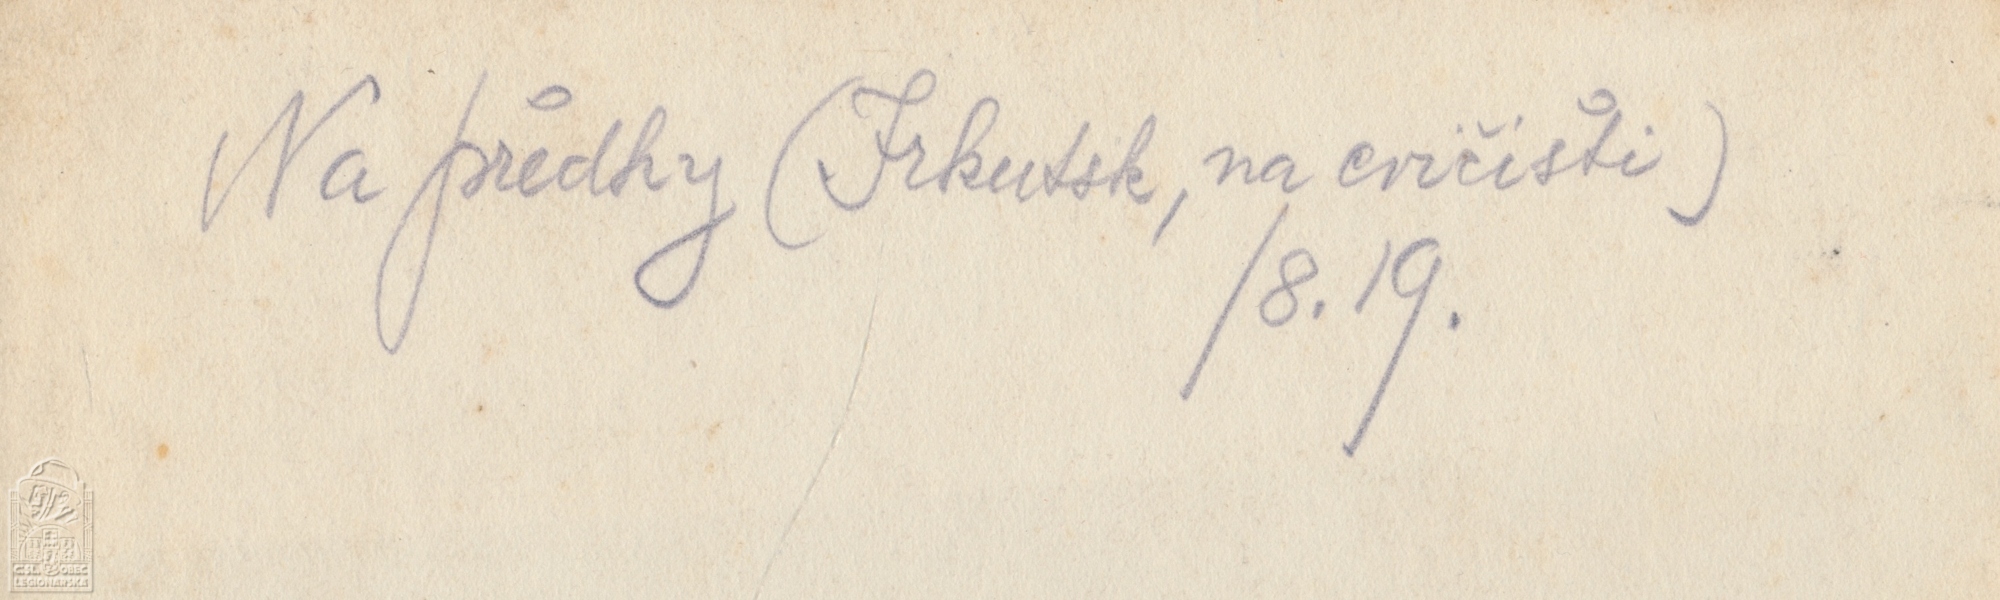 Na předky (Irkutsk, na cvičišti)
/8. 19.
ČSL. OBEC
LEGIONÁŘSKÁ